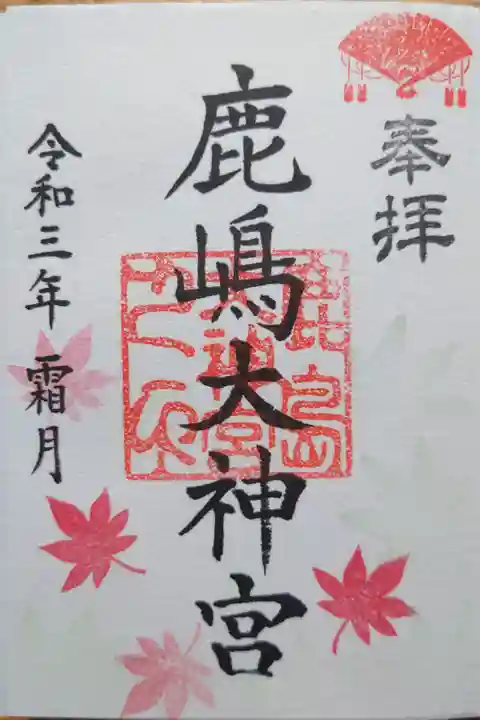 奉拝
鹿嶋大神宮
令和三年 霜月